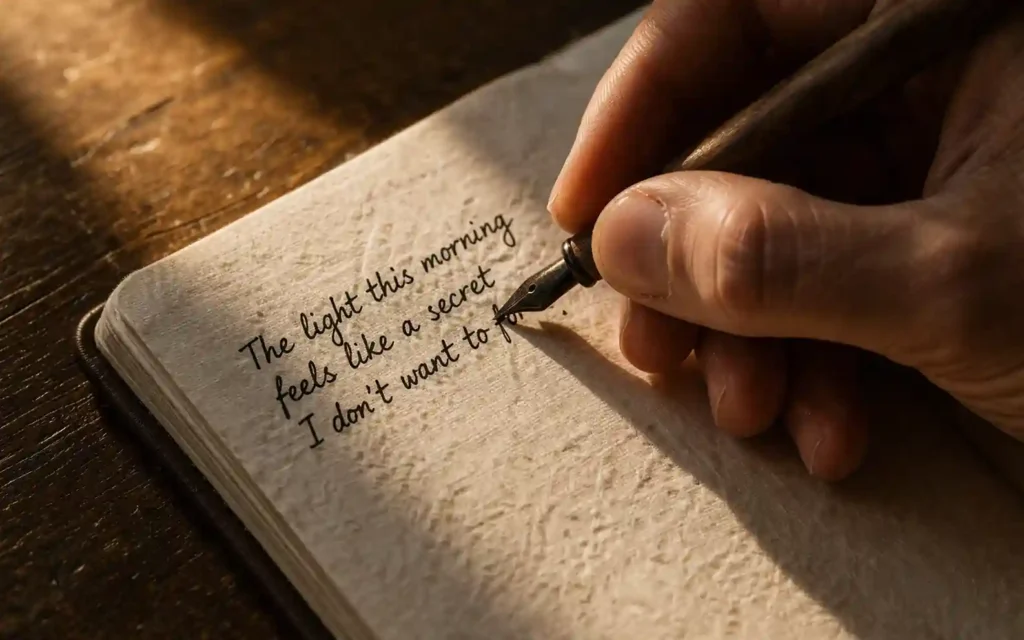 The light this morning
feels like a secret
I don't want to